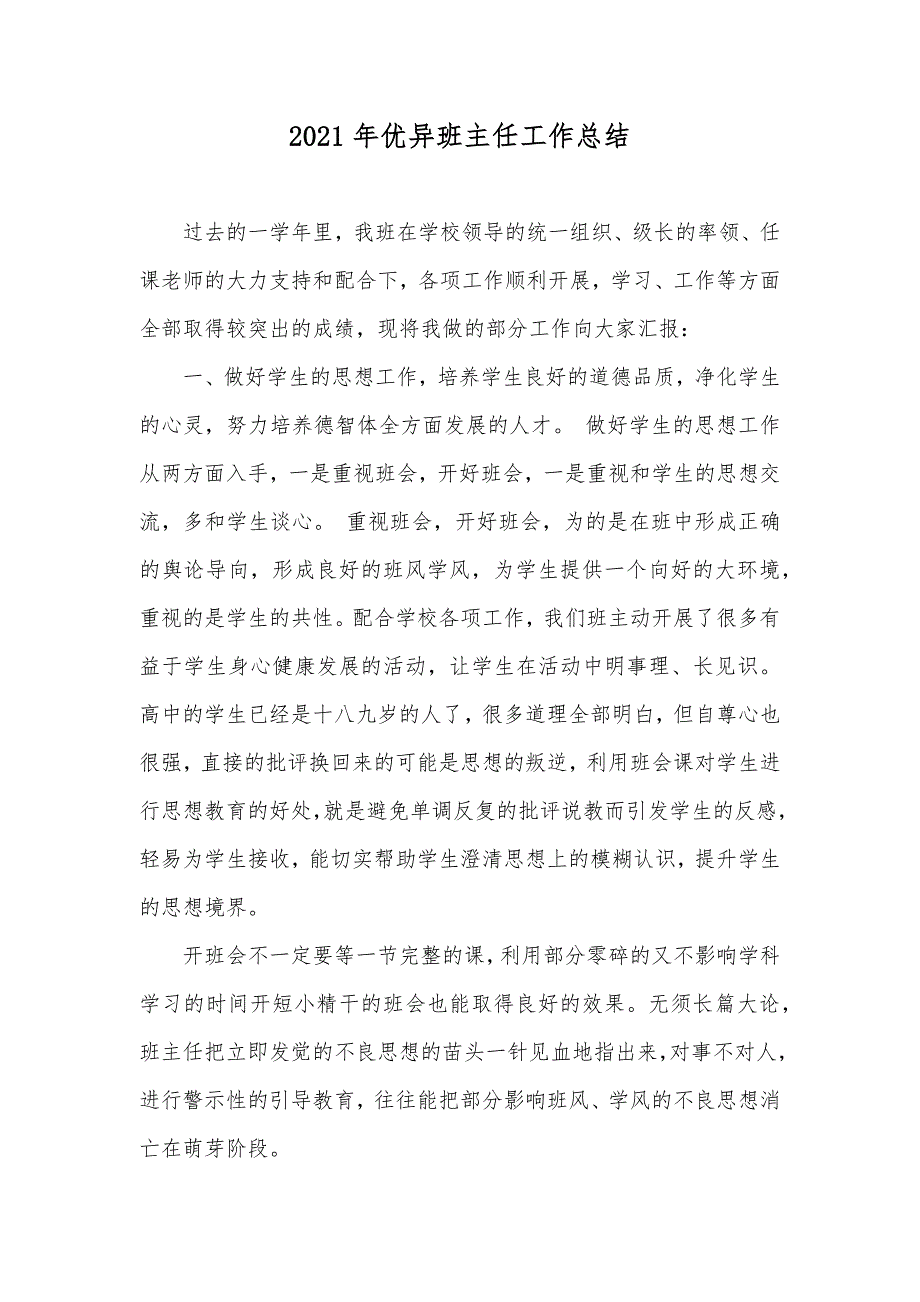 2021年优异班主任工作总结
过去的一学年里，我班在学校领导的统一组织、级长的率领、任
课老师的大力支持和配合下，各项工作顺利开展，学习、工作等方面
全部取得较突出的成绩，现将我做的部分工作向大家汇报：
一、做好学生的思想工作，培养学生良好的道德品质，净化学生
的心灵，努力培养德智体全方面发展的人才。 做好学生的思想工作
从两方面入手，一是重视班会，开好班会，一是重视和学生的思想交
流，多和学生谈心。 重视班会，开好班会，为的是在班中形成正确
的舆论导向，形成良好的班风学风，为学生提供一个向好的大环境，
重视的是学生的共性。配合学校各项工作，我们班主动开展了很多有
益于学生身心健康发展的活动，让学生在活动中明事理、长见识。
高中的学生已经是十八九岁的人了，很多道理全部明白，但自尊心也
很强，直接的批评换回来的可能是思想的叛逆，利用班会课对学生进
行思想教育的好处，就是避免单调反复的批评说教而引发学生的反感，
轻易为学生接收，能切实帮助学生澄清思想上的模糊认识，提升学生
的思想境界。
开班会不一定要等一节完整的课，利用部分零碎的又不影响学科
学习的时间开短小精干的班会也能取得良好的效果。无须长篇大论，
班主任把立即发觉的不良思想的苗头一针见血地指出来，对事不对人，
进行警示性的引导教育，往往能把部分影响班风、学风的不良思想消
亡在萌芽阶段。